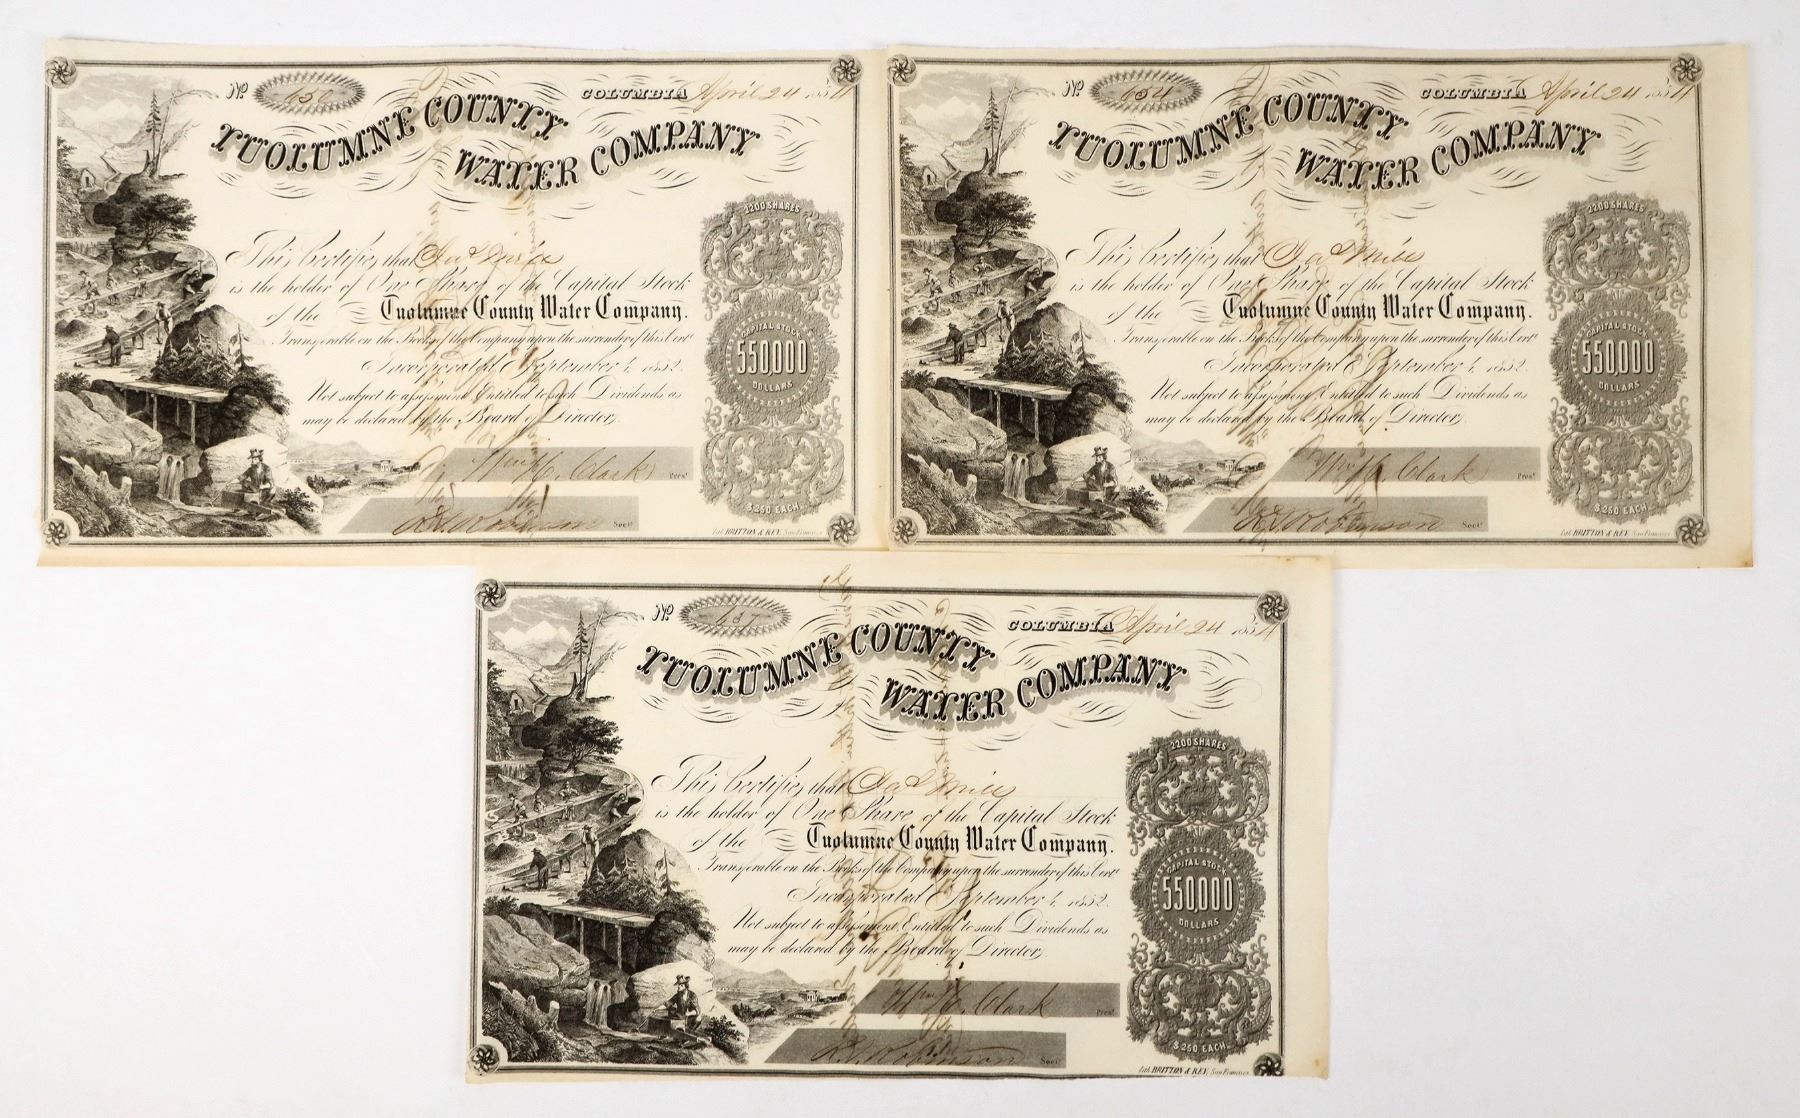 No 650 COLUMBIA April 24 1854
TUOLUMNE COUNTY
WATER COMPANY
2200 SHARES
This Certifies that Jas Mills
is the holder of One Share of the Capital Stock
of the Tuolumne County Water Company.
Transferable on the Books of the Company upon the surrender of this Certe
Incorporated September 4, 1852.
CAPITAL STOCK
550,000
DOLLARS
Not subject to assessment. Entitled to such Dividends as
may be declared by the Board of Directors,
Wm H. Clark Prest
$250 EACH.
R. A. Robinson Secty
Lith. BRITTON & REY, San Francisco
No 654 COLUMBIA April 24 1854
TUOLUMNE COUNTY
WATER COMPANY
2200 SHARES
This Certifies that Jas Mills
is the holder of One Share of the Capital Stock
of the Tuolumne County Water Company.
Transferable on the Books of the Company upon the surrender of this Certe
Incorporated September 4, 1852.
CAPITAL STOCK
550,000
DOLLARS
Not subject to assessment. Entitled to such Dividends as
may be declared by the Board of Directors,
Wm H. Clark Prest
$250 EACH.
R. A. Robinson Secty
Lith. BRITTON & REY, San Francisco
No 637 COLUMBIA April 24 1854
TUOLUMNE COUNTY
WATER COMPANY
2200 SHARES
This Certifies that Jas Mills
is the holder of One Share of the Capital Stock
of the Tuolumne County Water Company.
Transferable on the Books of the Company upon the surrender of this Certe
Incorporated September 4, 1852.
CAPITAL STOCK
550,000
DOLLARS
Not subject to assessment. Entitled to such Dividends as
may be declared by the Board of Directors,
Wm H. Clark Prest
$250 EACH.
R. A. Robinson Secty
Lith. BRITTON & REY, San Francisco